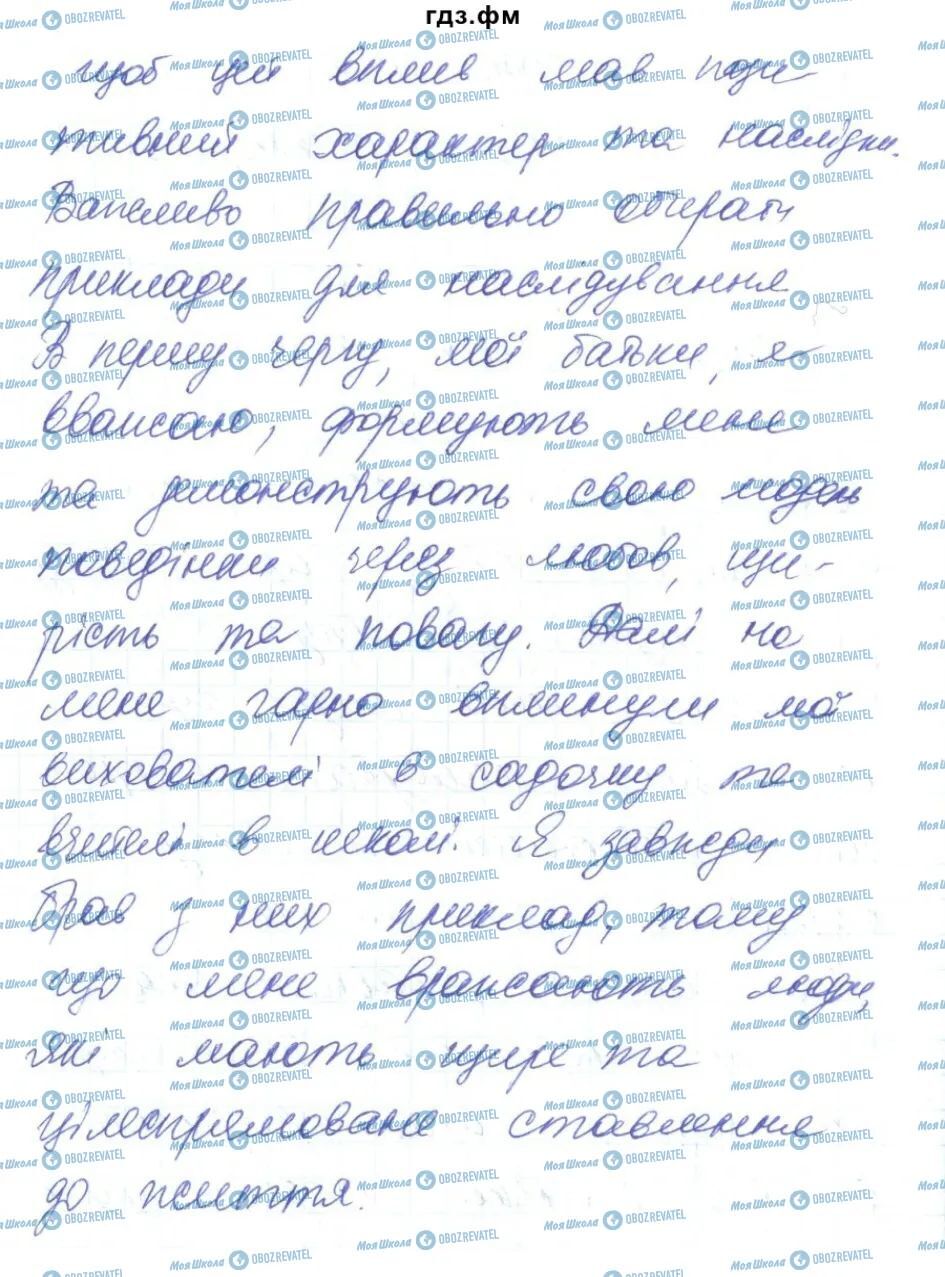 гдз.фм
щоб цей вплив мав пози-
тивний характер та наслідки.
Важливо правильно обирати
приклади для наслідування
В першу чергу, мої батьки, я
вважаю, формують мене
та демонструють свою модель
поведінки через любов, щи-
рість та повагу. Далі на
мене гарно вплинули мої
вихователі в садочку та
вчителі в школі. Я завжди
брав з них приклад, тому
що мене вражають люди,
які мають щире та
цілеспрямоване ставлення
до життя.